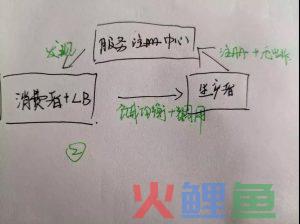 服务注册中心
发现
消费者+LB
生产者
负载均衡+调用
②
火鲤鱼